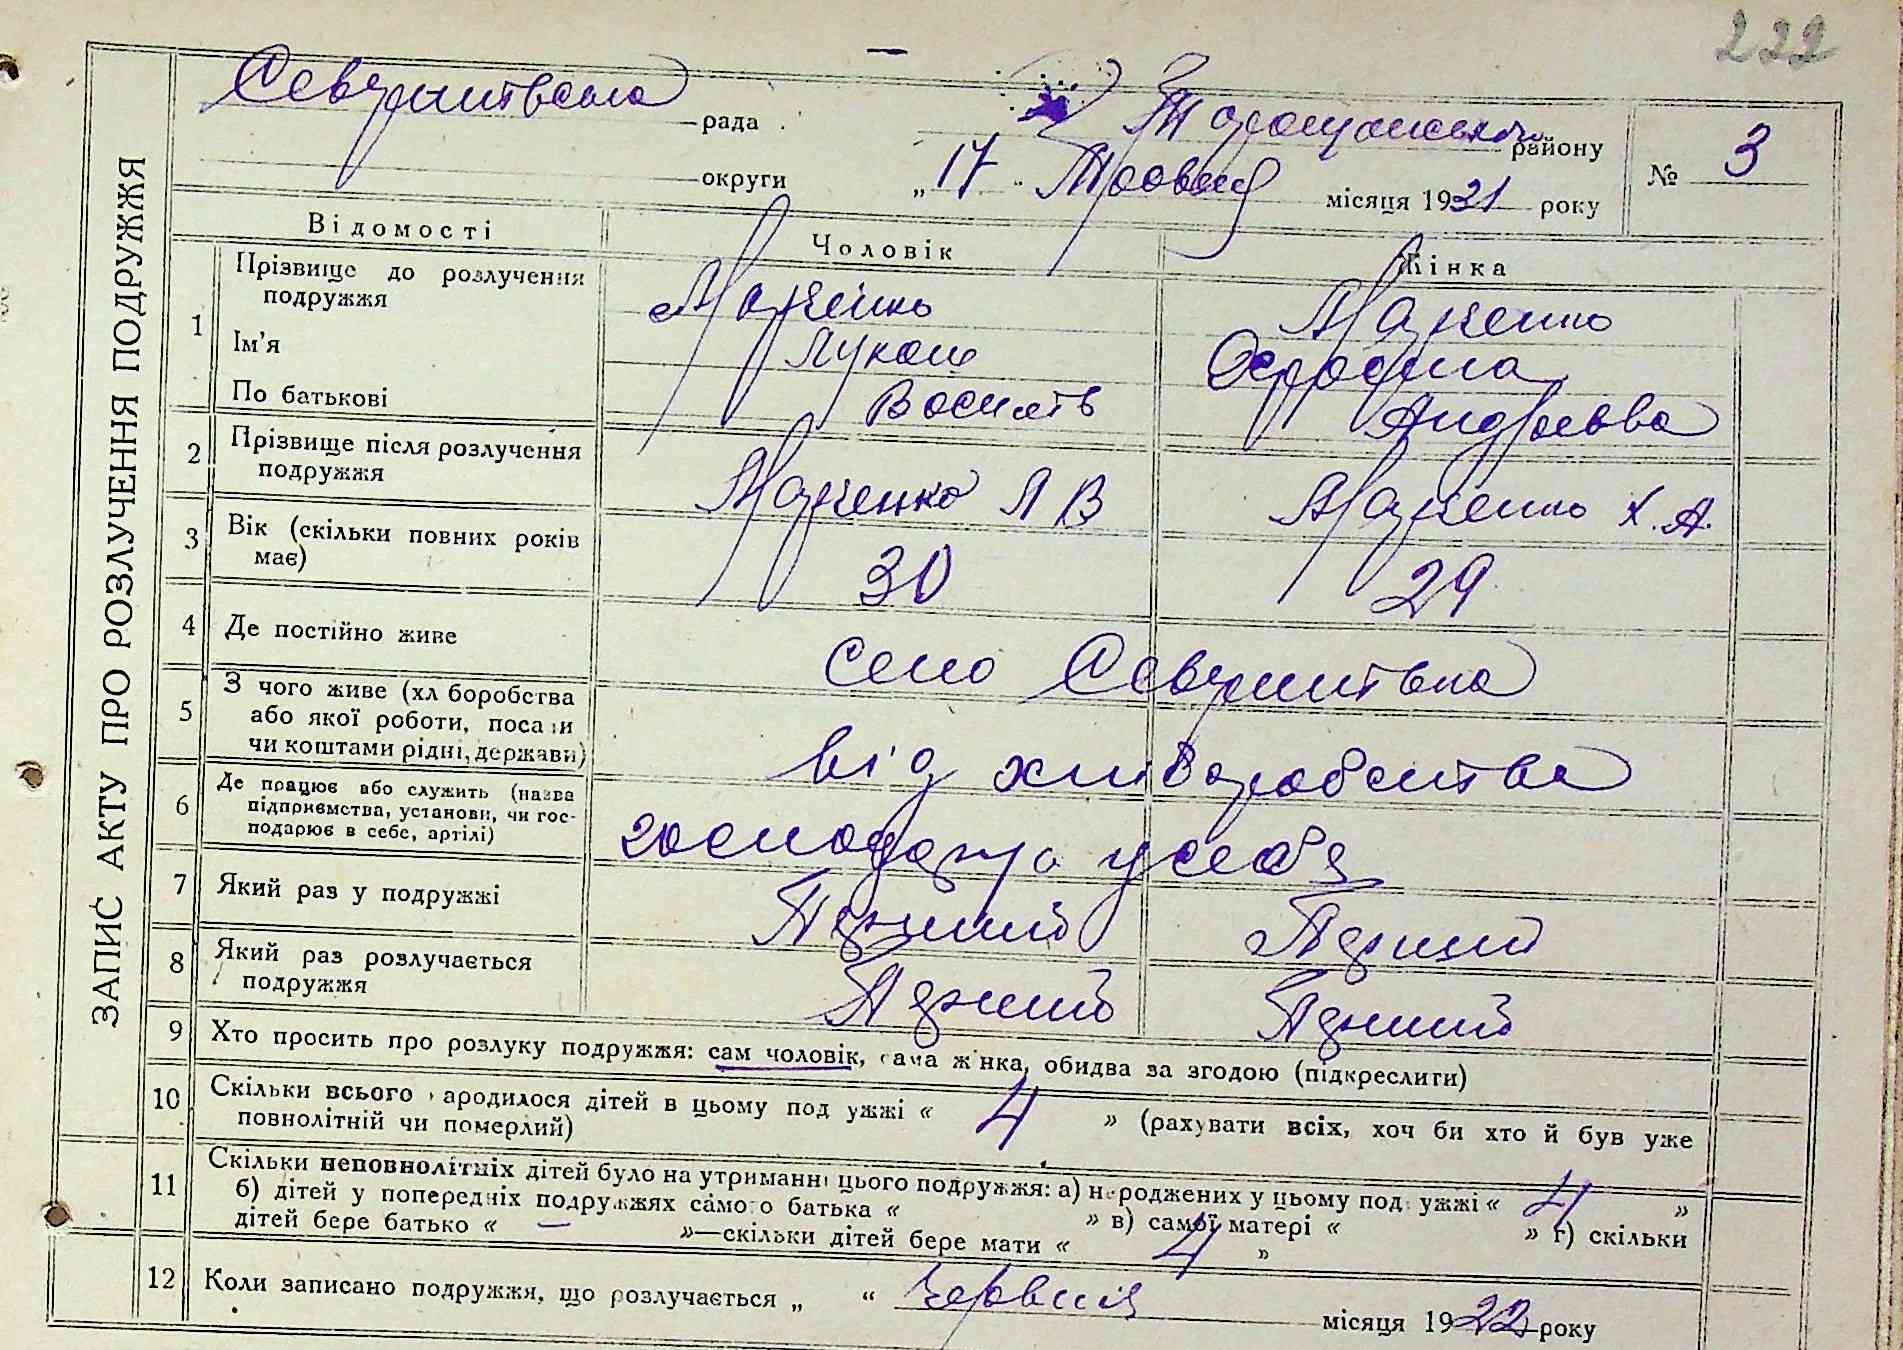 222
Северинівська рада Таращанського району № 3
округи „ 17 " Травня місяця 1931 року
ЗАПИС АКТУ ПРО РОЗЛУЧЕННЯ ПОДРУЖЖЯ
Відомості Чоловік Жінка
1 Прізвище до розлучення подружжя Марченко Марченко
Ім'я Лукаш
По батькові Василів Андріевва
2 Прізвище після розлучення подружжя Марченко Л В Марченко Х. А.
3 Вік (скільки повних років має) 30 29
4 Де постійно живе село Северинівка
5 З чого живе (хлiборобства або якої роботи, посади чи коштами рідні, держави) від хлиборобства
6 Де працює або служить (назва підприємства, установи, чи господарює в себе, артілі) господарує у себя
7 Який раз у подружжі Перший Перший
8 Який раз розлучається подружжя Перший Перший
9 Хто просить про розлуку подружжя: сам чоловік, сама жінка, обидва за згодою (підкреслити)
10 Скільки всього народилося дітей в цьому подружжі « 4 » (рахувати всіх, хоч би хто й був уже
повнолітній чи померлий)
11 Скільки неповнолітніх дітей було на утриманні цього подружжя: а) народжених у цьому подружжі « 4 »
б) дітей у попередніх подружжях самого батька « » в) самої матері « » г) скільки
дітей бере батько « — »—скільки дітей бере мати « 4 »
12 Коли записано подружжя, що розлучається „ “ Червния місяця 1922 року